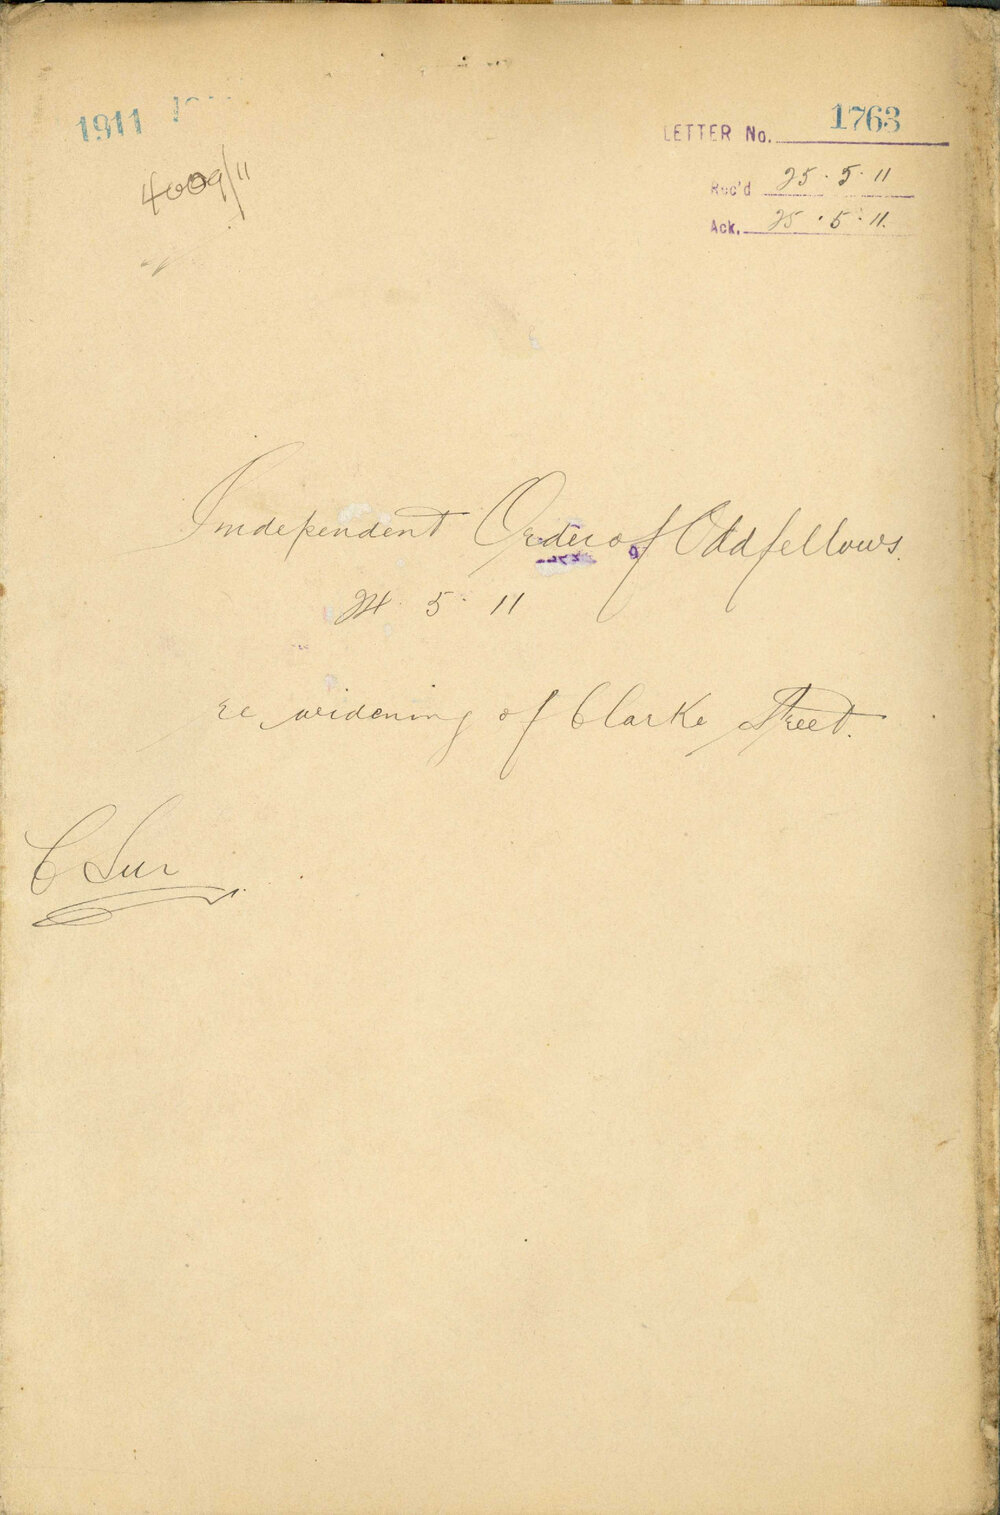 1911
LETTER No. 1763
4009/11
Rec'd 25.5.11
Ack. 25.5.11.
Independent Order of Oddfellows.
24.5.11
re widening of Clarke Street.
C Sur